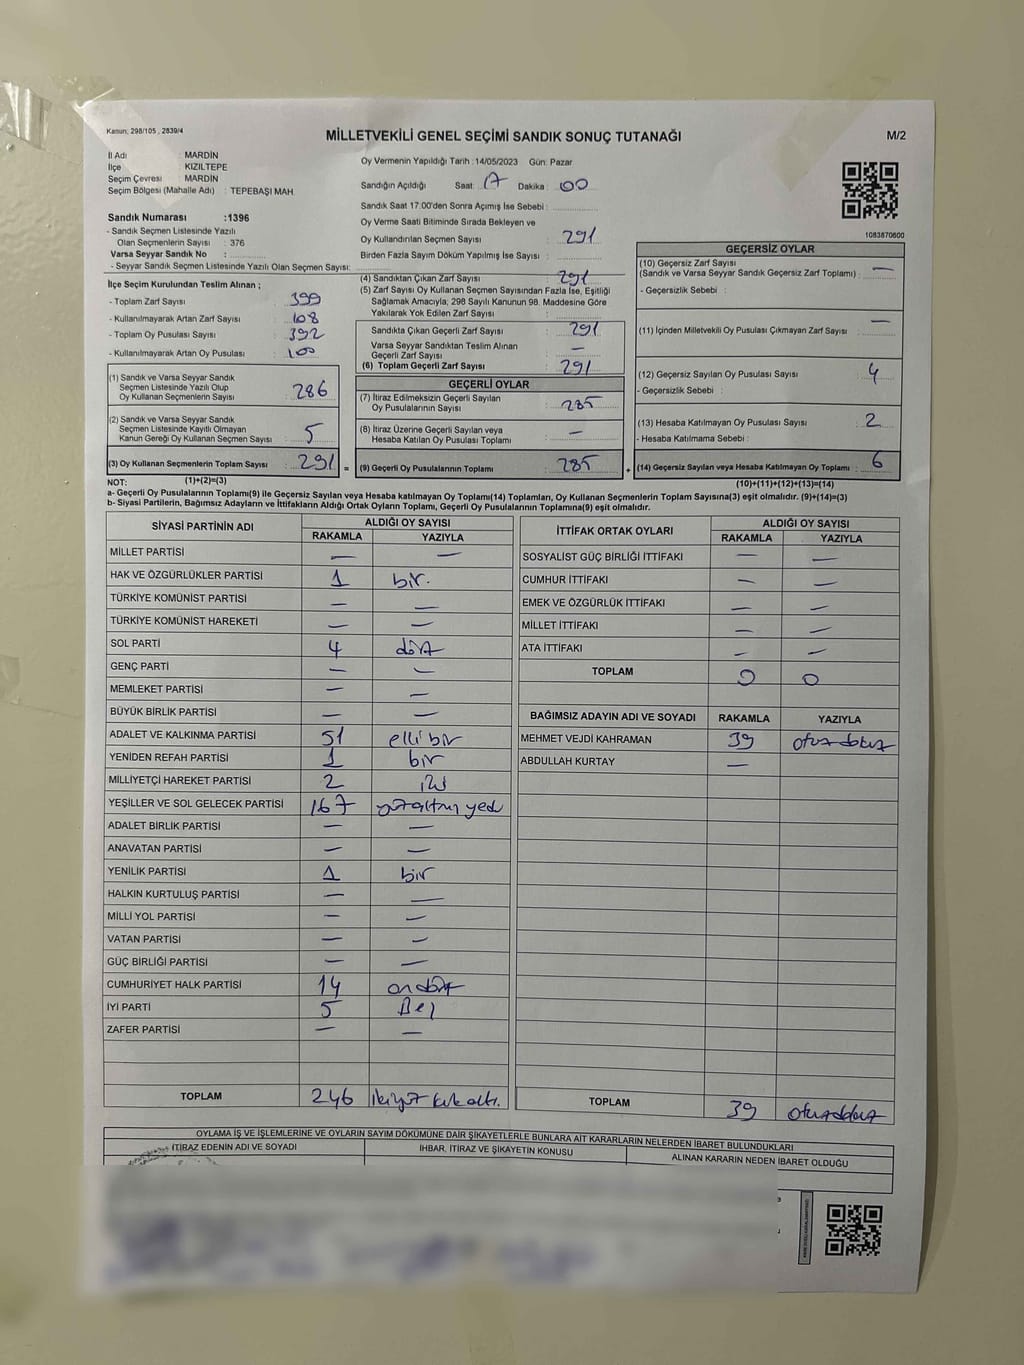 Kanun; 298/105 , 2839/4
MİLLETVEKİLİ GENEL SEÇİMİ SANDIK SONUÇ TUTANAĞI
M/2
İl Adı : MARDİN
İlçe : KIZILTEPE
Seçim Çevresi : MARDİN
Seçim Bölgesi (Mahalle Adı) : TEPEBAŞI MAH.
Sandık Numarası :1396
- Sandık Seçmen Listesinde Yazılı
Olan Seçmenlerin Sayısı : 376
Varsa Seyyar Sandık No :
- Seyyar Sandık Seçmen Listesinde Yazılı Olan Seçmen Sayısı:
İlçe Seçim Kurulundan Teslim Alınan ;
- Toplam Zarf Sayısı : 399
- Kullanılmayarak Artan Zarf Sayısı : 108
- Toplam Oy Pusulası Sayısı : 392
- Kullanılmayarak Artan Oy Pusulası : 100
(1) Sandık ve Varsa Seyyar Sandık
Seçmen Listesinde Yazılı Olup
Oy Kullanan Seçmenlerin Sayısı : 286
(2) Sandık ve Varsa Seyyar Sandık
Seçmen Listesinde Kayıtlı Olmayan
Kanun Gereği Oy Kullanan Seçmen Sayısı : 5
(3) Oy Kullanan Seçmenlerin Toplam Sayısı : 291 =
Oy Vermenin Yapıldığı Tarih :14/05/2023 Gün: Pazar
Sandığın Açıldığı Saat: 17 Dakika : 00
Sandık Saat 17:00'den Sonra Açımış İse Sebebi :
Oy Verme Saati Bitiminde Sırada Bekleyen ve
Oy Kullandırılan Seçmen Sayısı : 291
Birden Fazla Sayım Döküm Yapılmış İse Sayısı :
(4) Sandıktan Çıkan Zarf Sayısı : 291
(5) Zarf Sayısı Oy Kullanan Seçmen Sayısından Fazla İse, Eşitliği
Sağlamak Amacıyla; 298 Sayılı Kanunun 98. Maddesine Göre
Yakılarak Yok Edilen Zarf Sayısı :
Sandıkta Çıkan Geçerli Zarf Sayısı : 291
Varsa Seyyar Sandıktan Teslim Alınan
Geçerli Zarf Sayısı : —
(6) Toplam Geçerli Zarf Sayısı : 291
GEÇERLİ OYLAR
(7) İtiraz Edilmeksizin Geçerli Sayılan
Oy Pusulalarının Sayısı : 285
(8) İtiraz Üzerine Geçerli Sayılan veya
Hesaba Katılan Oy Pusulası Toplamı : —
(9) Geçerli Oy Pusulalarının Toplamı : 285 +
1083870600
GEÇERSİZ OYLAR
(10) Geçersiz Zarf Sayısı
(Sandık ve Varsa Seyyar Sandık Geçersiz Zarf Toplamı) : —
- Geçersizlik Sebebi :
(11) İçinden Milletvekili Oy Pusulası Çıkmayan Zarf Sayısı : —
(12) Geçersiz Sayılan Oy Pusulası Sayısı : 4
- Geçersizlik Sebebi :
(13) Hesaba Katılmayan Oy Pusulası Sayısı : 2
- Hesaba Katılmama Sebebi :
(14) Geçersiz Sayılan veya Hesaba Katılmayan Oy Toplamı : 6
NOT: (1)+(2)=(3)
(10)+(11)+(12)+(13)=(14)
a- Geçerli Oy Pusulalarının Toplamı(9) ile Geçersiz Sayılan veya Hesaba katılmayan Oy Toplamı(14) Toplamları, Oy Kullanan Seçmenlerin Toplam Sayısına(3) eşit olmalıdır. (9)+(14)=(3)
b- Siyasi Partilerin, Bağımsız Adayların ve İttifakların Aldığı Ortak Oyların Toplamı, Geçerli Oy Pusulalarının Toplamına(9) eşit olmalıdır.
SİYASİ PARTİNİN ADI ALDIĞI OY SAYISI
RAKAMLA YAZIYLA
MİLLET PARTİSİ — —
HAK VE ÖZGÜRLÜKLER PARTİSİ 1 bir.
TÜRKİYE KOMÜNİST PARTİSİ — —
TÜRKİYE KOMÜNİST HAREKETİ — —
SOL PARTİ 4 dört
GENÇ PARTİ — —
MEMLEKET PARTİSİ — —
BÜYÜK BİRLİK PARTİSİ — —
ADALET VE KALKINMA PARTİSİ 51 elli bir
YENİDEN REFAH PARTİSİ 1 bir
MİLLİYETÇİ HAREKET PARTİSİ 2 iki
YEŞİLLER VE SOL GELECEK PARTİSİ 167 yüzaltmışyedi
ADALET BİRLİK PARTİSİ — —
ANAVATAN PARTİSİ — —
YENİLİK PARTİSİ 1 bir
HALKIN KURTULUŞ PARTİSİ — —
MİLLİ YOL PARTİSİ — —
VATAN PARTİSİ — —
GÜÇ BİRLİĞİ PARTİSİ — —
CUMHURİYET HALK PARTİSİ 14 ondört
İYİ PARTİ 5 Beş
ZAFER PARTİSİ — —
TOPLAM 246 ikiyüz kırkaltı.
İTTİFAK ORTAK OYLARI ALDIĞI OY SAYISI
RAKAMLA YAZIYLA
SOSYALİST GÜÇ BİRLİĞİ İTTİFAKI — —
CUMHUR İTTİFAKI — —
EMEK VE ÖZGÜRLÜK İTTİFAKI — —
MİLLET İTTİFAKI — —
ATA İTTİFAKI — —
TOPLAM 0 0
BAĞIMSIZ ADAYIN ADI VE SOYADI RAKAMLA YAZIYLA
MEHMET VEJDİ KAHRAMAN 39 otuzdokuz
ABDULLAH KURTAY —
TOPLAM 39 otuzdokuz
OYLAMA İŞ VE İŞLEMLERİNE VE OYLARIN SAYIM DÖKÜMÜNE DAİR ŞİKAYETLERLE BUNLARA AİT KARARLARIN NELERDEN İBARET BULUNDUKLARI
İTİRAZ EDENİN ADI VE SOYADI İHBAR, İTİRAZ VE ŞİKAYETİN KONUSU ALINAN KARARIN NEDEN İBARET OLDUĞU